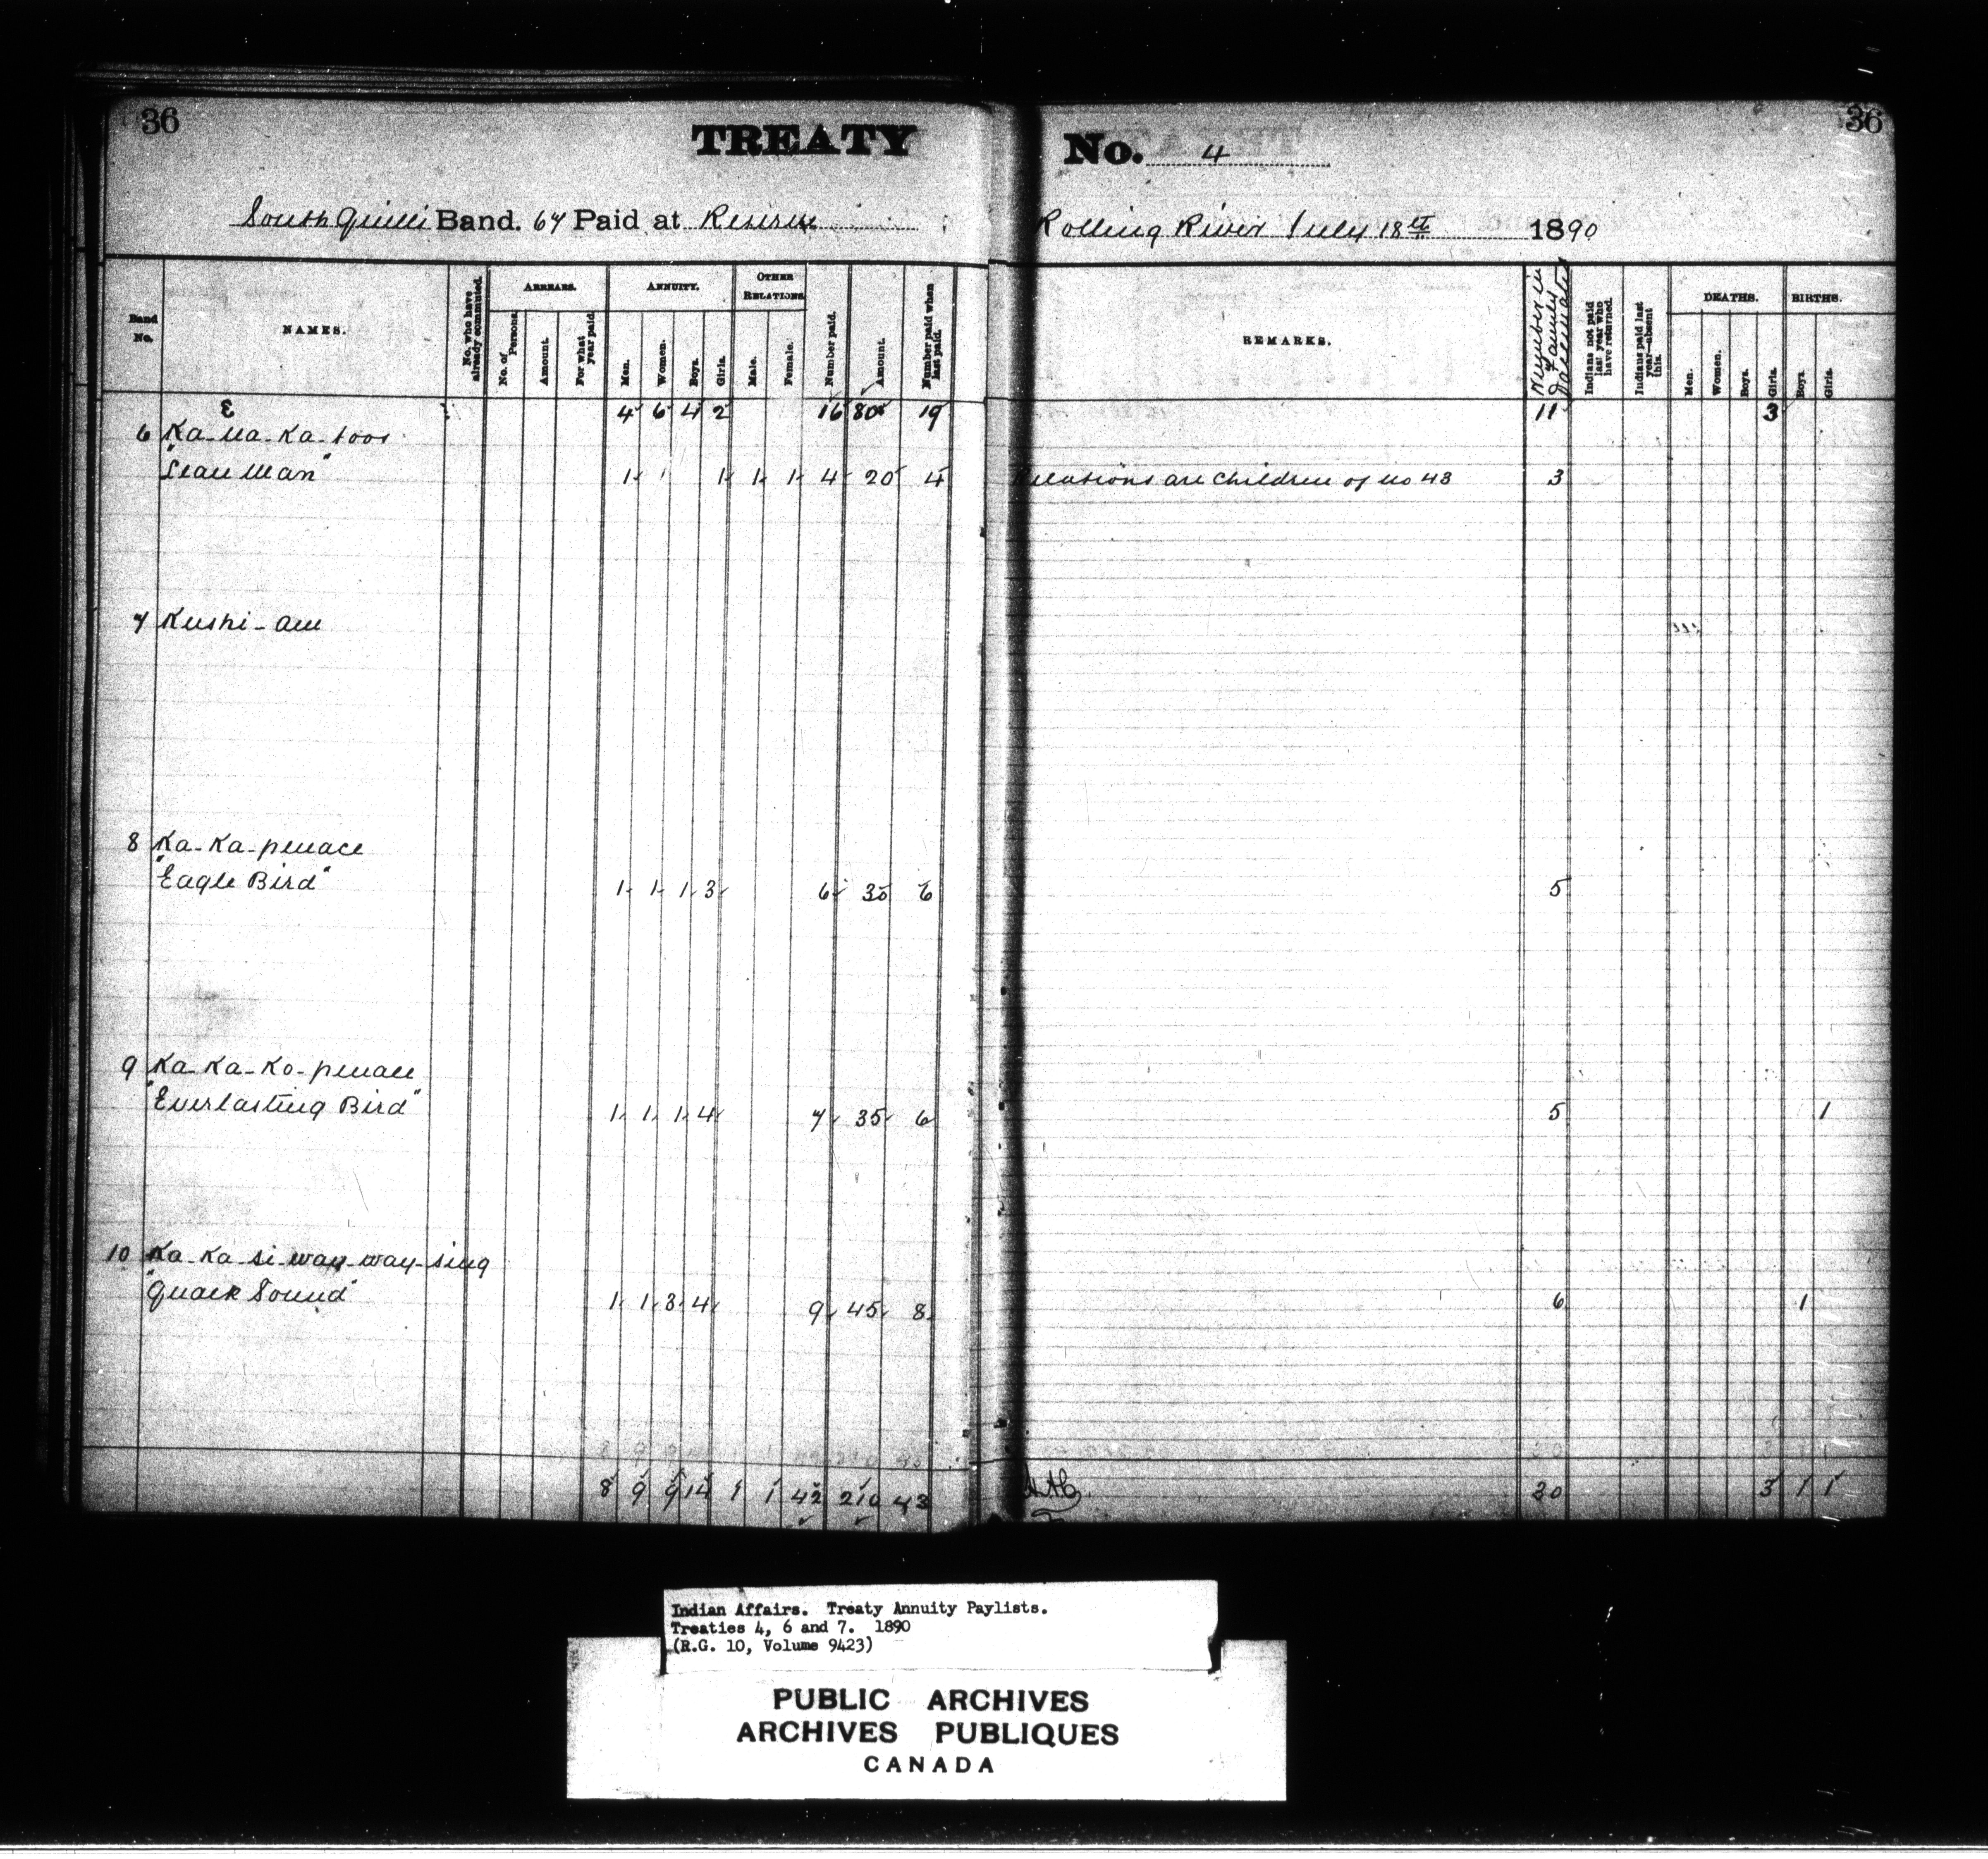 36
36
TREATY No. 4
South Quill Band. 67 Paid at Reserve Rolling River July 18th 1890
Band No. NAMES. No. who have already commuted. ARREARS. No. of Persons. Amount. For what year paid. ANNUITY. Men. Women. Boys. Girls. OTHER RELATIONS Male. Female. Number paid. Amount. Number paid when last paid. REMARKS. Number in Family Vaccinated Indians not paid last year who have returned. Indians paid last year—absent this. DEATHS. Men. Women. Boys. Girls. BIRTHS. Boys. Girls.
4 6 4 2 16 80 19 11 3
6 Ka-na-ka-toos
"Lean Man" 1 1 1 1 4 20 4 Relations are children of no 43 3
7 Kushi-am
8 Ka-Ka-penace
"Eagle Bird" 1 1 1 3 6 30 6 5
9 Ka-Ka-Ko-penace
"Everlasting Bird" 1 1 1 4 7 35 6 5 1
10 Ka-Ka-si-way-way-sing
"Quack Sound" 1 1 3 4 9 45 8 6 1
8 9 9 14 1 1 42 210 43 30 3 1 1
Indian Affairs. Treaty Annuity Paylists.
Treaties 4, 6 and 7. 1890
(R.G. 10, Volume 9423)
PUBLIC ARCHIVES
ARCHIVES PUBLIQUES
CANADA